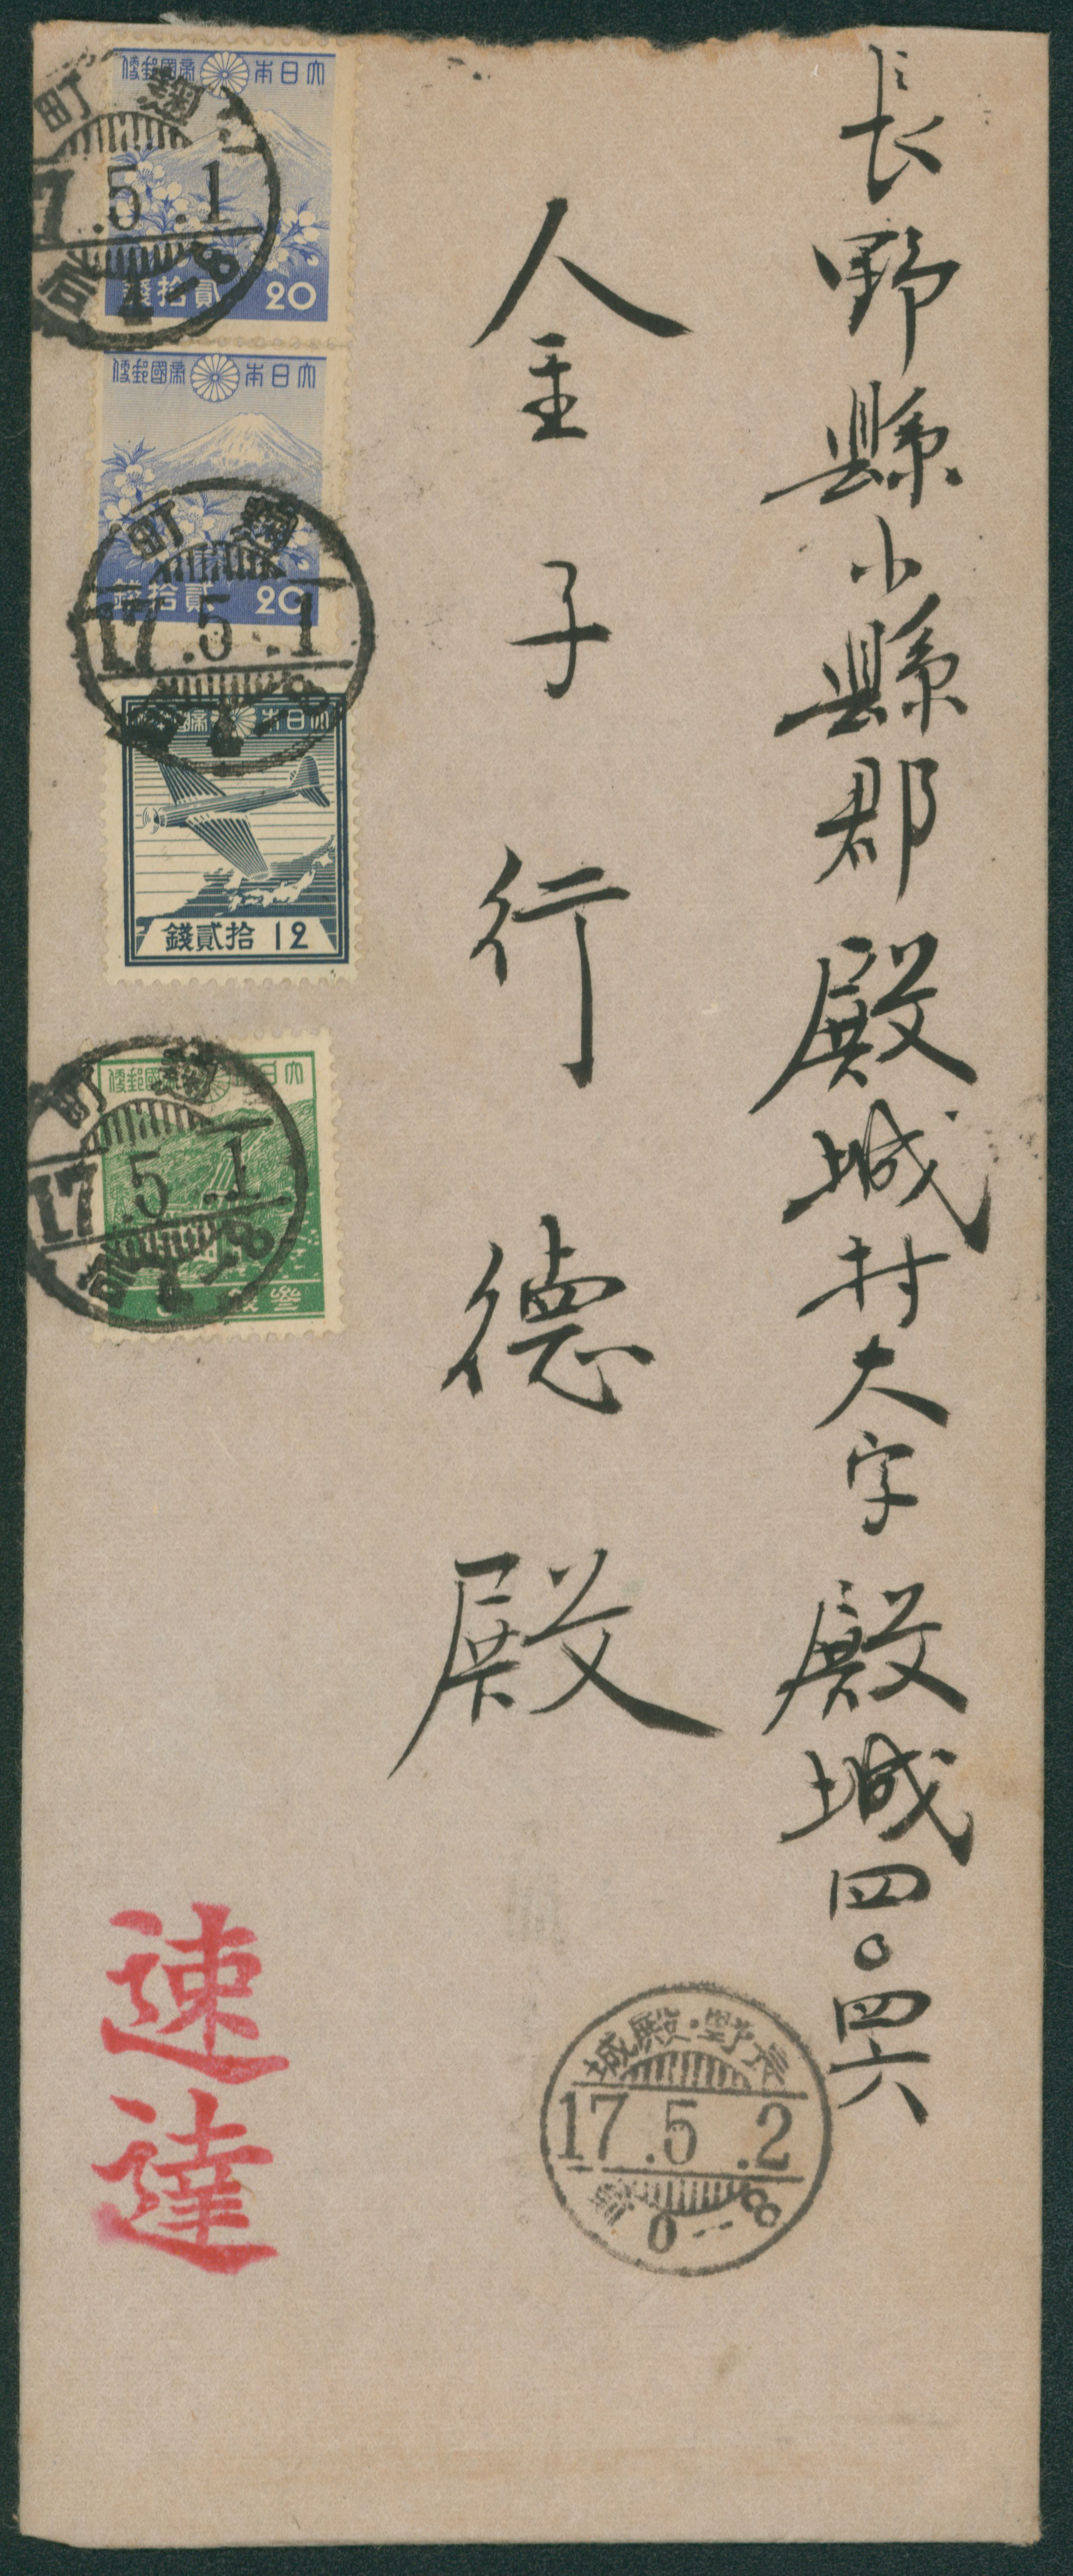 長野縣小縣郡殿城村大字殿城四〇四六
金子行德殿
大日本帝國郵便
貳拾錢
20
麹町
17.5.1
后
4-8
大日本帝國郵便
貳拾錢
20
麹町
17.5.1
后
4-8
大日本帝國郵便
拾貳錢
12
大日本帝國郵便
參錢
麹町
17.5.1
后
4-8
速達
長野・殿城
17.5.2
0-8